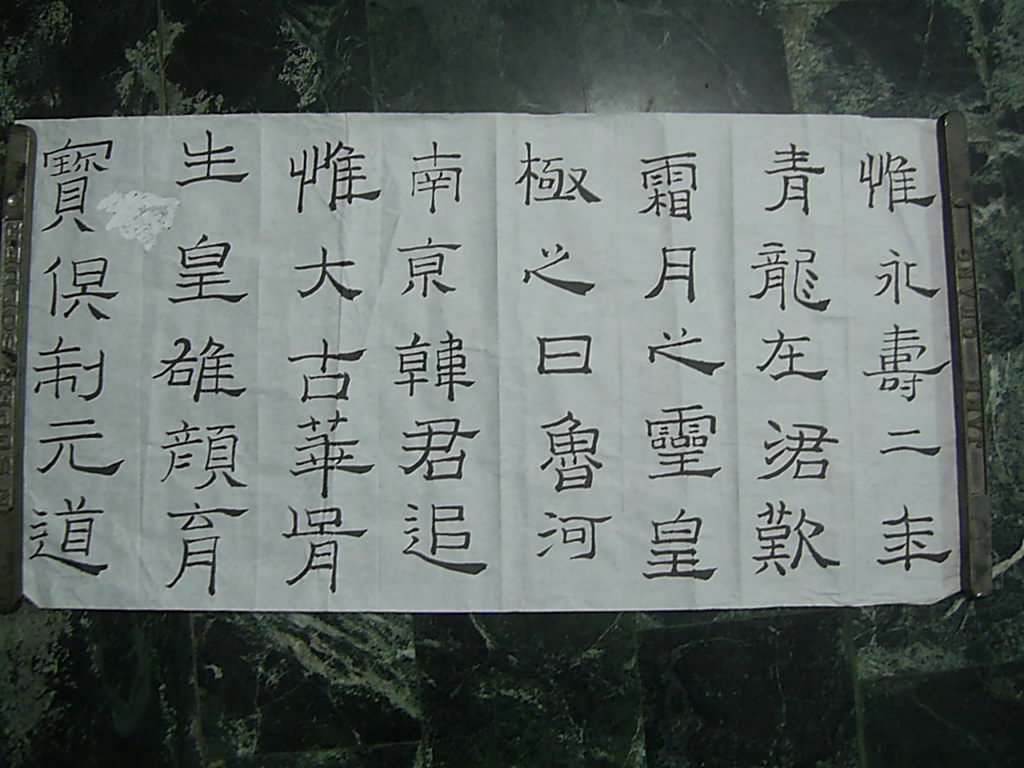 惟永壽二年
青龍在涒歎
霜月之靈皇
極之日魯河
南京韓君追
惟大古華胥
生皇雄顏育
寶俱制元道